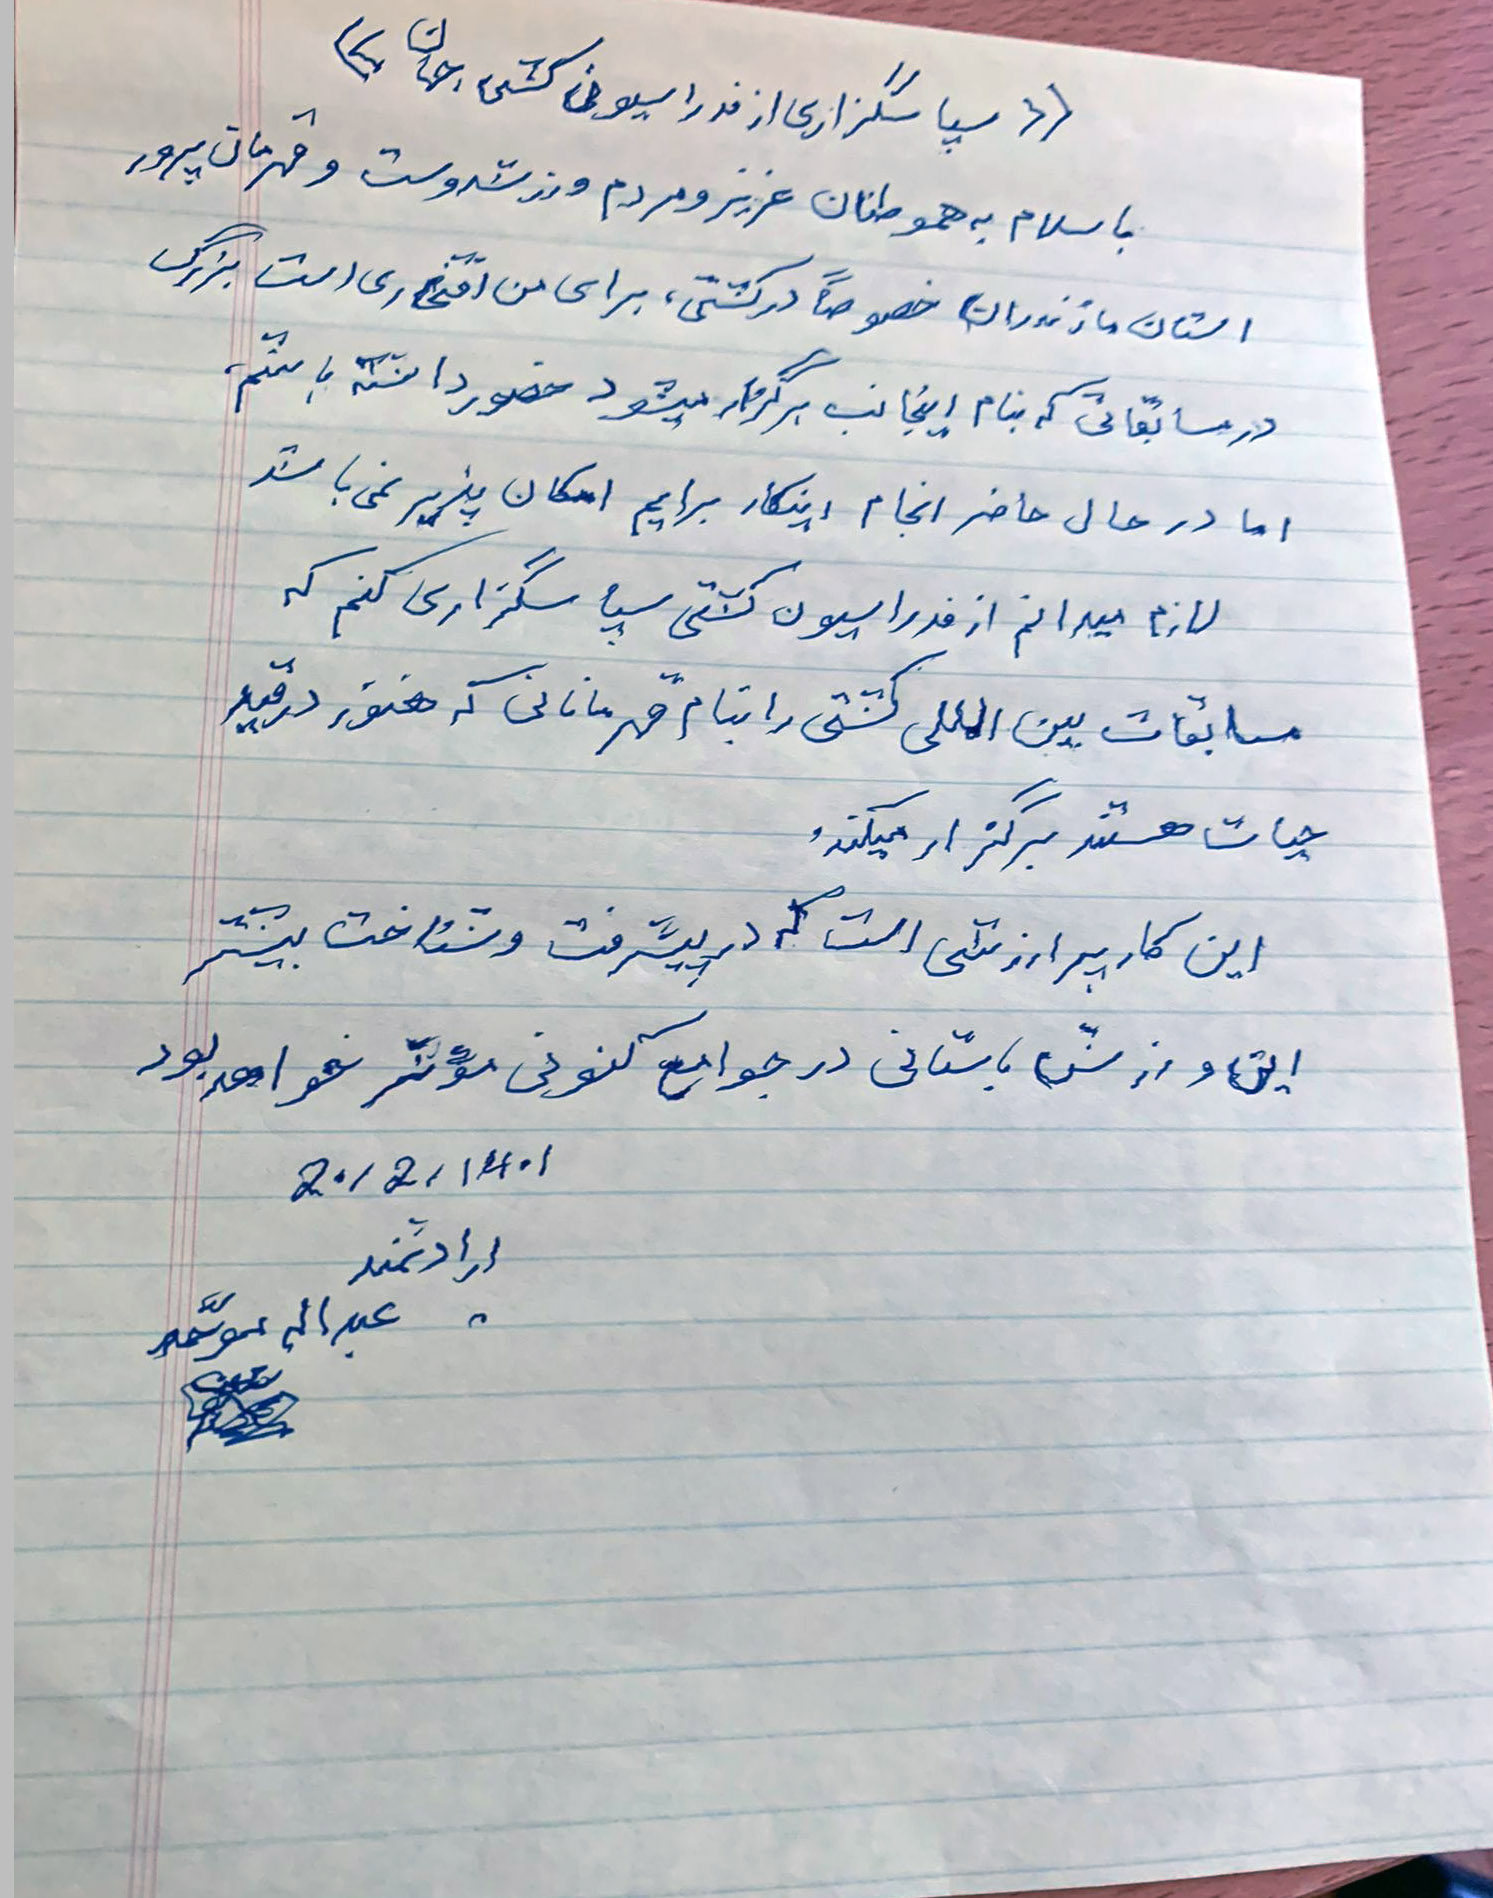 «سپاسگزاری از فدراسیون کشتی جهان»
با سلام به هموطنان عزیز و مردم ورزشدوست و قهرمان پرور
استان مازندران خصوصاً در کشتی، برای من افتخاری است بزرگ
در مسابقاتی که بنام اینجانب برگزار میشود حضور داشته باشم،
اما در حال حاضر انجام اینکار برایم امکان پذیر نمی باشد
لازم میدانم از فدراسیون کشتی سپاسگزاری کنم که
مسابقات بین المللی کشتی را بنام قهرمانانی که هنوز در قید
حیات هستند برگزار میکند،
این کار پر ارزشی است که در پیشرفت و شناخت بیشتر
این ورزش باستانی در جوامع کنونی مؤثر خواهد بود
20/2/1401
ارادتمند
عبداله موحد